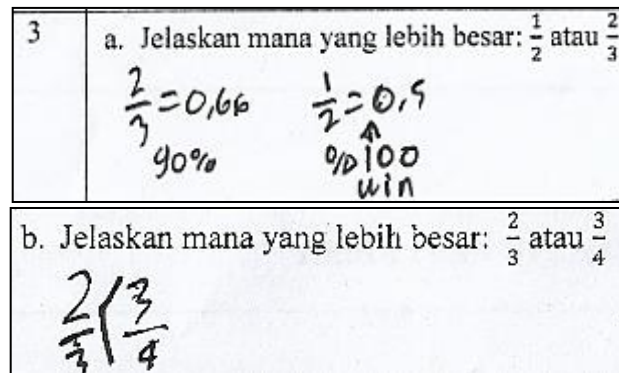 3 a. Jelaskan mana yang lebih besar: 1/2 atau 2/3
2/3 = 0,66 1/2 = 0,5
90% % 100
win
b. Jelaskan mana yang lebih besar: 2/3 atau 3/4
2/3 < 3/4